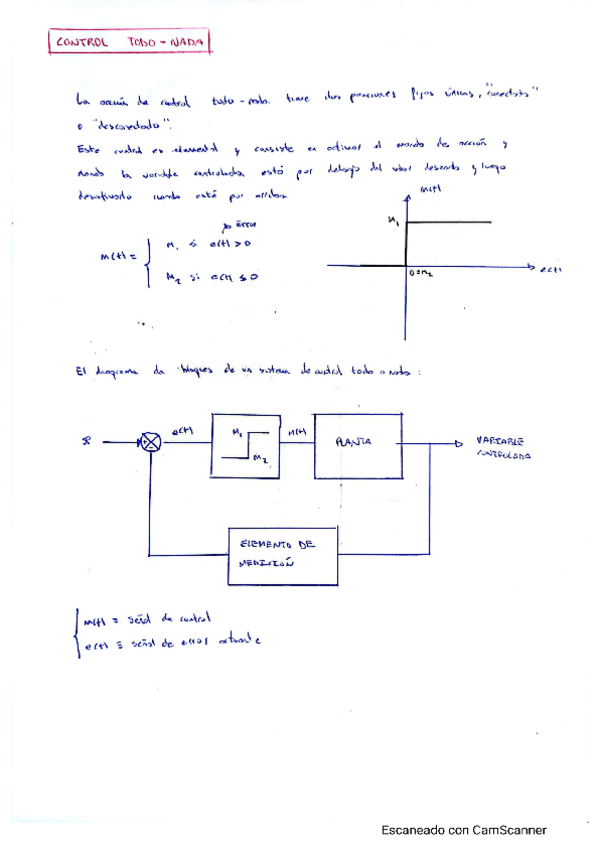 CONTROL TODO-NADA
La acción de control todo-nada tiene dos posiciones fijas únicas, "conectado"
o "desconectado".
Este control es elemental y consiste en activar el mando de acción y
cuando la variable controlada está por debajo del valor deseado y luego
desactivarlo cuando está por arriba
m(t)
M1
0=M2
e(t)
error
m(t) =
M1 si e(t) > 0
M2 si e(t) ≤ 0
El diagrama de bloques de un sistema de control todo o nada:
e(t)
M1
M2
M(t)
PLANTA
VARIABLE
CONTROLADA
+
-
ELEMENTO DE
MEDICIÓN
m(t) ≡ señal de control
e(t) ≡ señal de error actuante
Escaneado con CamScanner